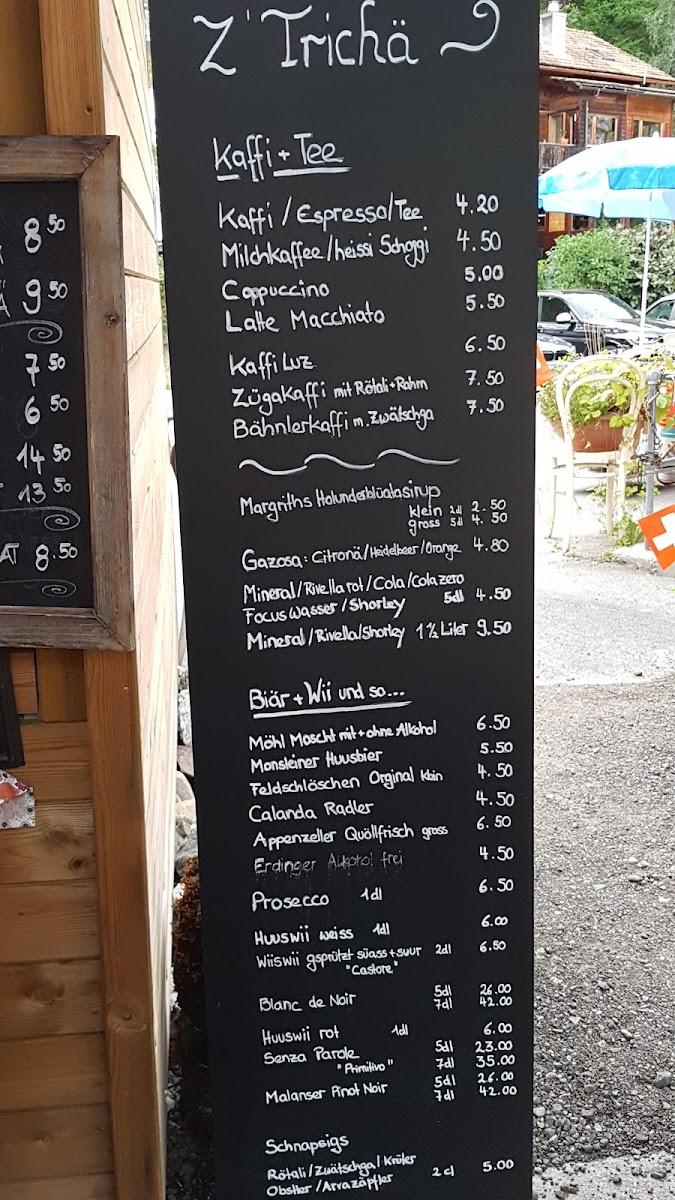 8.50
9.50
7.50
6.50
14.50
13.50
AT 8.50
Z'Trichä
Kaffi + Tee
Kaffi / Espresso/Tee 4.20
Milchkaffee/heissi Schoggi 4.50
Cappuccino 5.00
Latte Macchiato 5.50
Kaffi Luz 6.50
Zügakaffi mit Rötali + Rahm 7.50
Bähnlerkaffi m. Zwätschga 7.50
Margriths Holunderblüatasirup
klein 2dl 2.50
gross 5dl 4.50
Gazosa: Citronä/Heidelbeer/Orange 4.80
Mineral/Rivella rot/Cola/Cola zero
Focus Wasser/Shorley 5dl 4.50
Mineral/Rivella/Shorley 1 1/2 Liter 9.50
Biär + Wii und so...
Möhl Moscht mit + ohne Alkohol 6.50
Monsteiner Huusbier 5.50
Feldschlöschen Orginal klein 4.50
Calanda Radler 4.50
Appenzeller Quöllfrisch gross 6.50
Erdinger Alkohol frei 4.50
Prosecco 1dl 6.50
Huuswii weiss 1dl 6.00
Wiiswii gsprützt süass + suur 2dl 6.50
"Castore"
Blanc de Noir 5dl 26.00
7dl 42.00
Huuswii rot 1dl 6.00
Senza Parole 5dl 23.00
"Primitivo" 7dl 35.00
Malanser Pinot Noir 5dl 26.00
7dl 42.00
Schnapsigs
Rötali/Zwätschga/Krüter
Obstler/Arvazäpfler 2cl 5.00